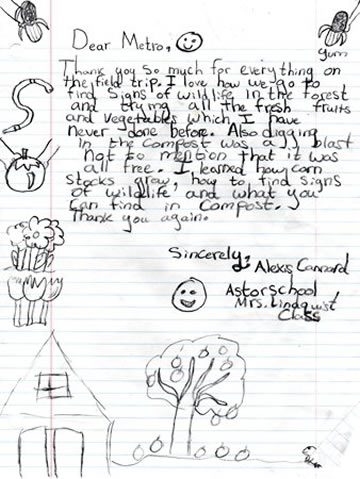 Dear Metro,
Yum
Thank you so much for everything on
the field trip. I love how we go to
find signs of wildlife in the forest
and trying all the fresh fruits
and vegetables which I have
never done before. Also digging
in the compost was a blast
not to mention that it was
all free. I learned how corn
stocks grew, how to find signs
of wildlife and what you
can find in compost.
Thank you again.
Sincerely,
Alexis Cannard
Astor school
Mrs. Lindquist
Class